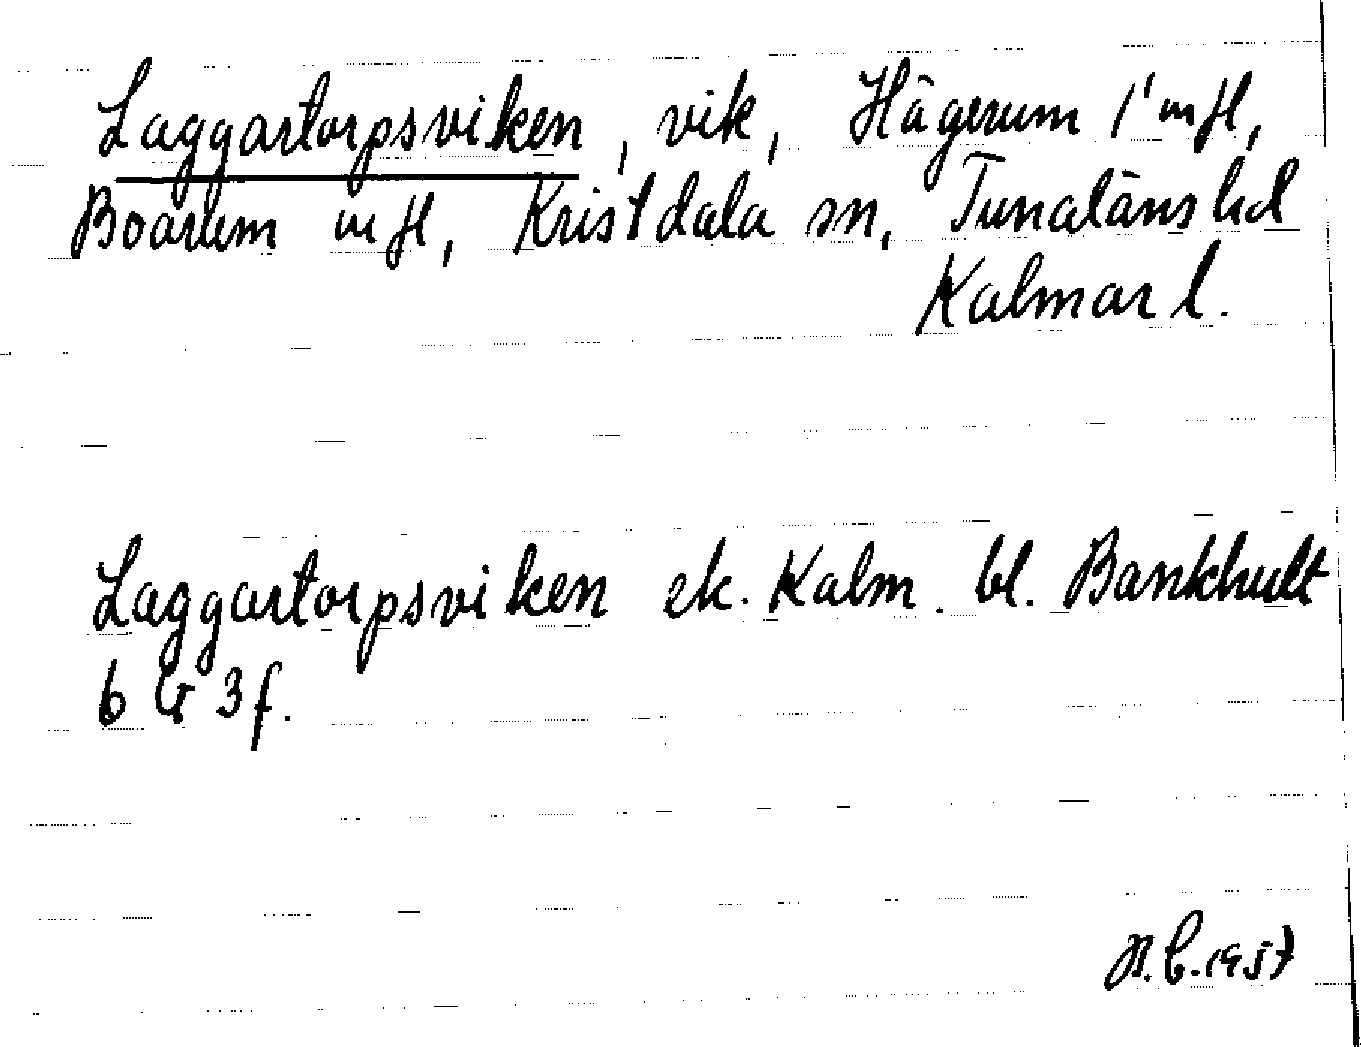 Laggartorpsviken, vik, Hägerum 1' mfl,
Boarum mfl, Kristdala sn, Tunaläns hd
Kalmar l.
Laggartorpsviken ek. Kalm. bl. Bankhult
6 G 3f.
1957